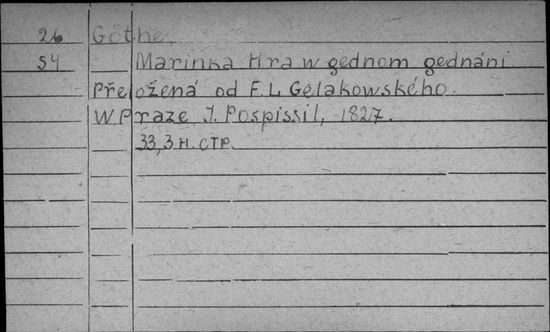 26 Göthe
54 Marinka Hra w gednom gednáni
Přeložená od F. L. Gelakowského.
W Praze, J. Pospissil, 1827.
33, 3 н. стр.